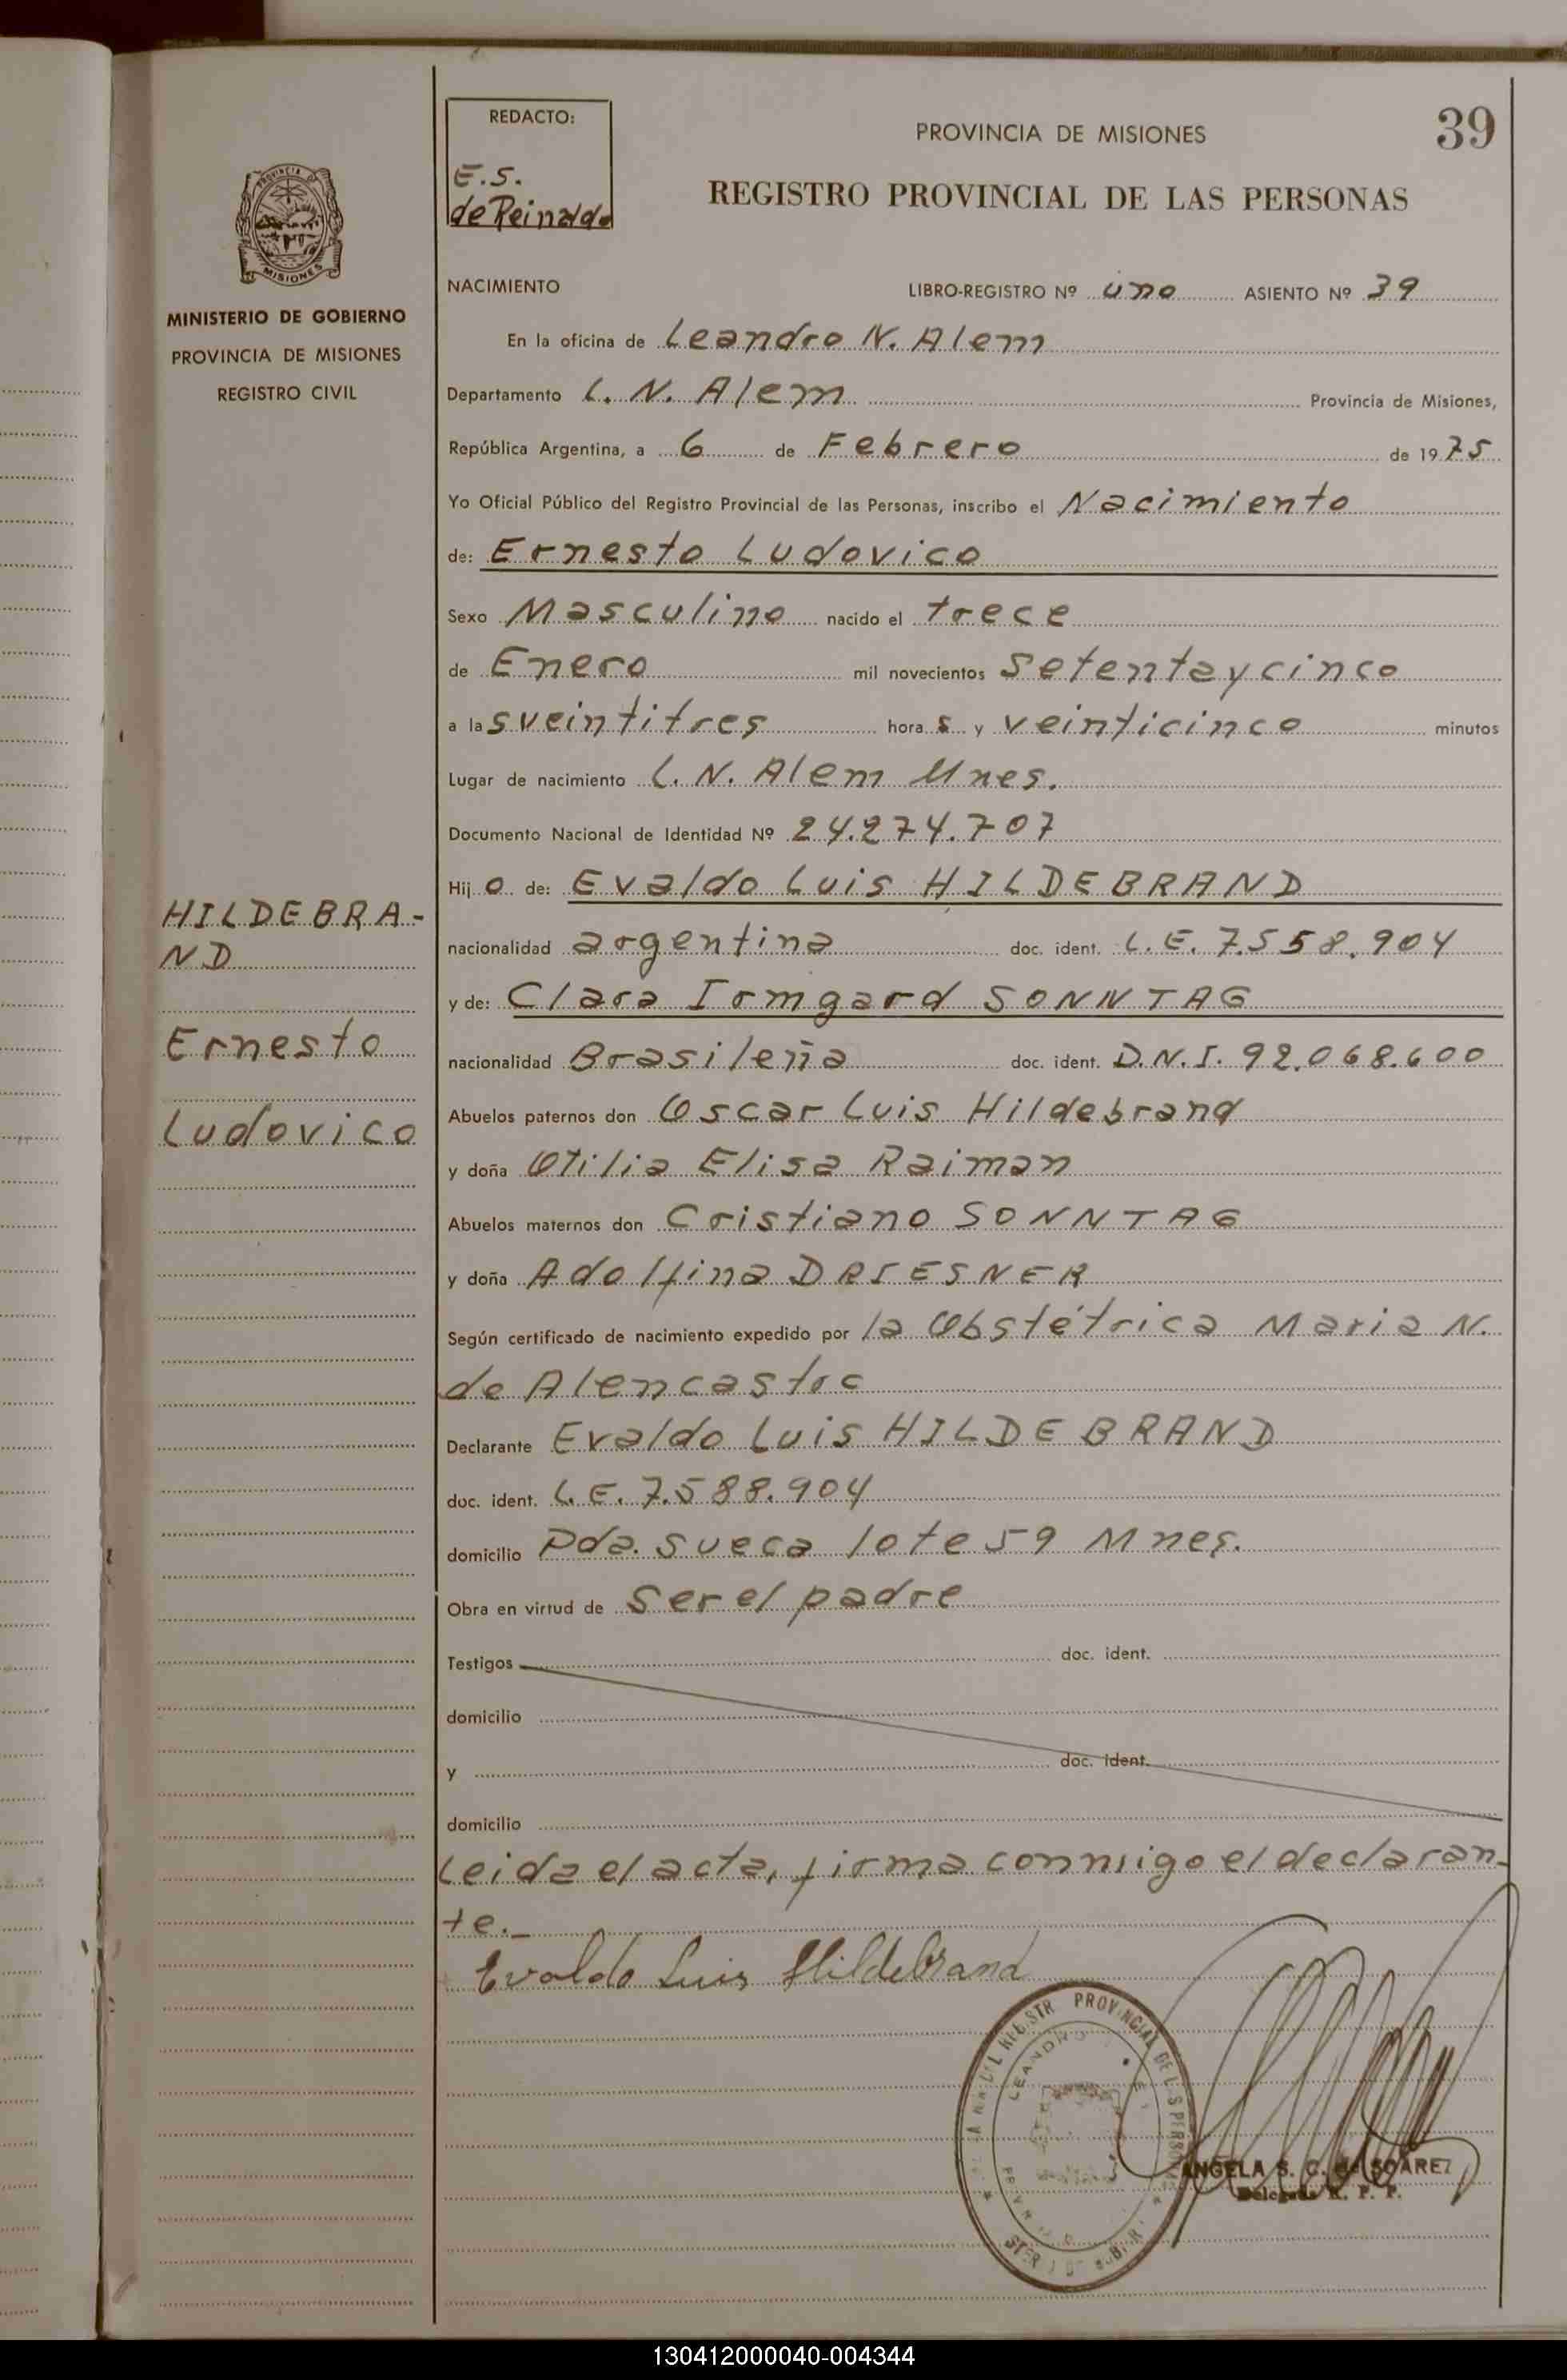 REDACTO:
E.S.
de Reinaldo
PROVINCIA DE MISIONES
39
REGISTRO PROVINCIAL DE LAS PERSONAS
PROVINCIA DE
MISIONES
MINISTERIO DE GOBIERNO
PROVINCIA DE MISIONES
REGISTRO CIVIL
NACIMIENTO LIBRO-REGISTRO Nº uno ASIENTO Nº 39
En la oficina de Leandro N. Alem
Departamento L. N. Alem Provincia de Misiones,
República Argentina, a 6 de Febrero de 1975
Yo Oficial Público del Registro Provincial de las Personas, inscribo el Nacimiento
de: Ernesto Ludovico
Sexo Masculino nacido el trece
de Enero mil novecientos setentaycinco
a las veintitres hora s y veinticinco minutos
Lugar de nacimiento L. N. Alem Mnes.
Documento Nacional de Identidad Nº 24.274.707
Hijo de: Evaldo Luis HILDEBRAND
HILDEBRA-
ND
nacionalidad argentina doc. ident. L.E. 7.558.904
y de: Clara Irmgard SONNTAG
Ernesto
nacionalidad Brasileña doc. ident. D.N.I. 92.068.600
Ludovico
Abuelos paternos don Oscar Luis Hildebrand
y doña Otilia Elisa Raiman
Abuelos maternos don Cristiano SONNTAG
y doña Adolfina DRIESNER
Según certificado de nacimiento expedido por la Obstétrica Maria N.
de Alencastro
Declarante Evaldo Luis HILDEBRAND
doc. ident. L.E. 7.588.904
domicilio Pda. Sueca lote 59 Mnes.
Obra en virtud de ser el padre
Testigos doc. ident.
domicilio
y doc. ident.
domicilio
Leida el acta, firma conmigo el declaran-
te.-
Evaldo Luis Hildebrand
PROVINCIAL DE
LEANDRO
ANGELA S. C. de SOAREZ
Delegada R. P. P.
130412000040-004344